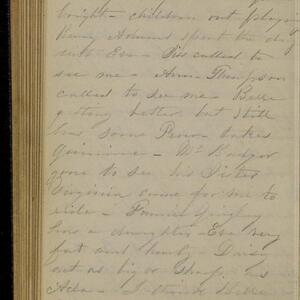 bright - children out playing
Henry Adams spent the day
with Eva - Piss called to
see me - Annie Thompson
called to see me - Belle
getting better but still
has some Fever takes
Quinine - Mr Badger
gone to see his Sister
Virginia came for me to
ride - Fannie
has a daughter - Eva very
fat and hearty - Daisy
not as big or
Ada - I think Belle